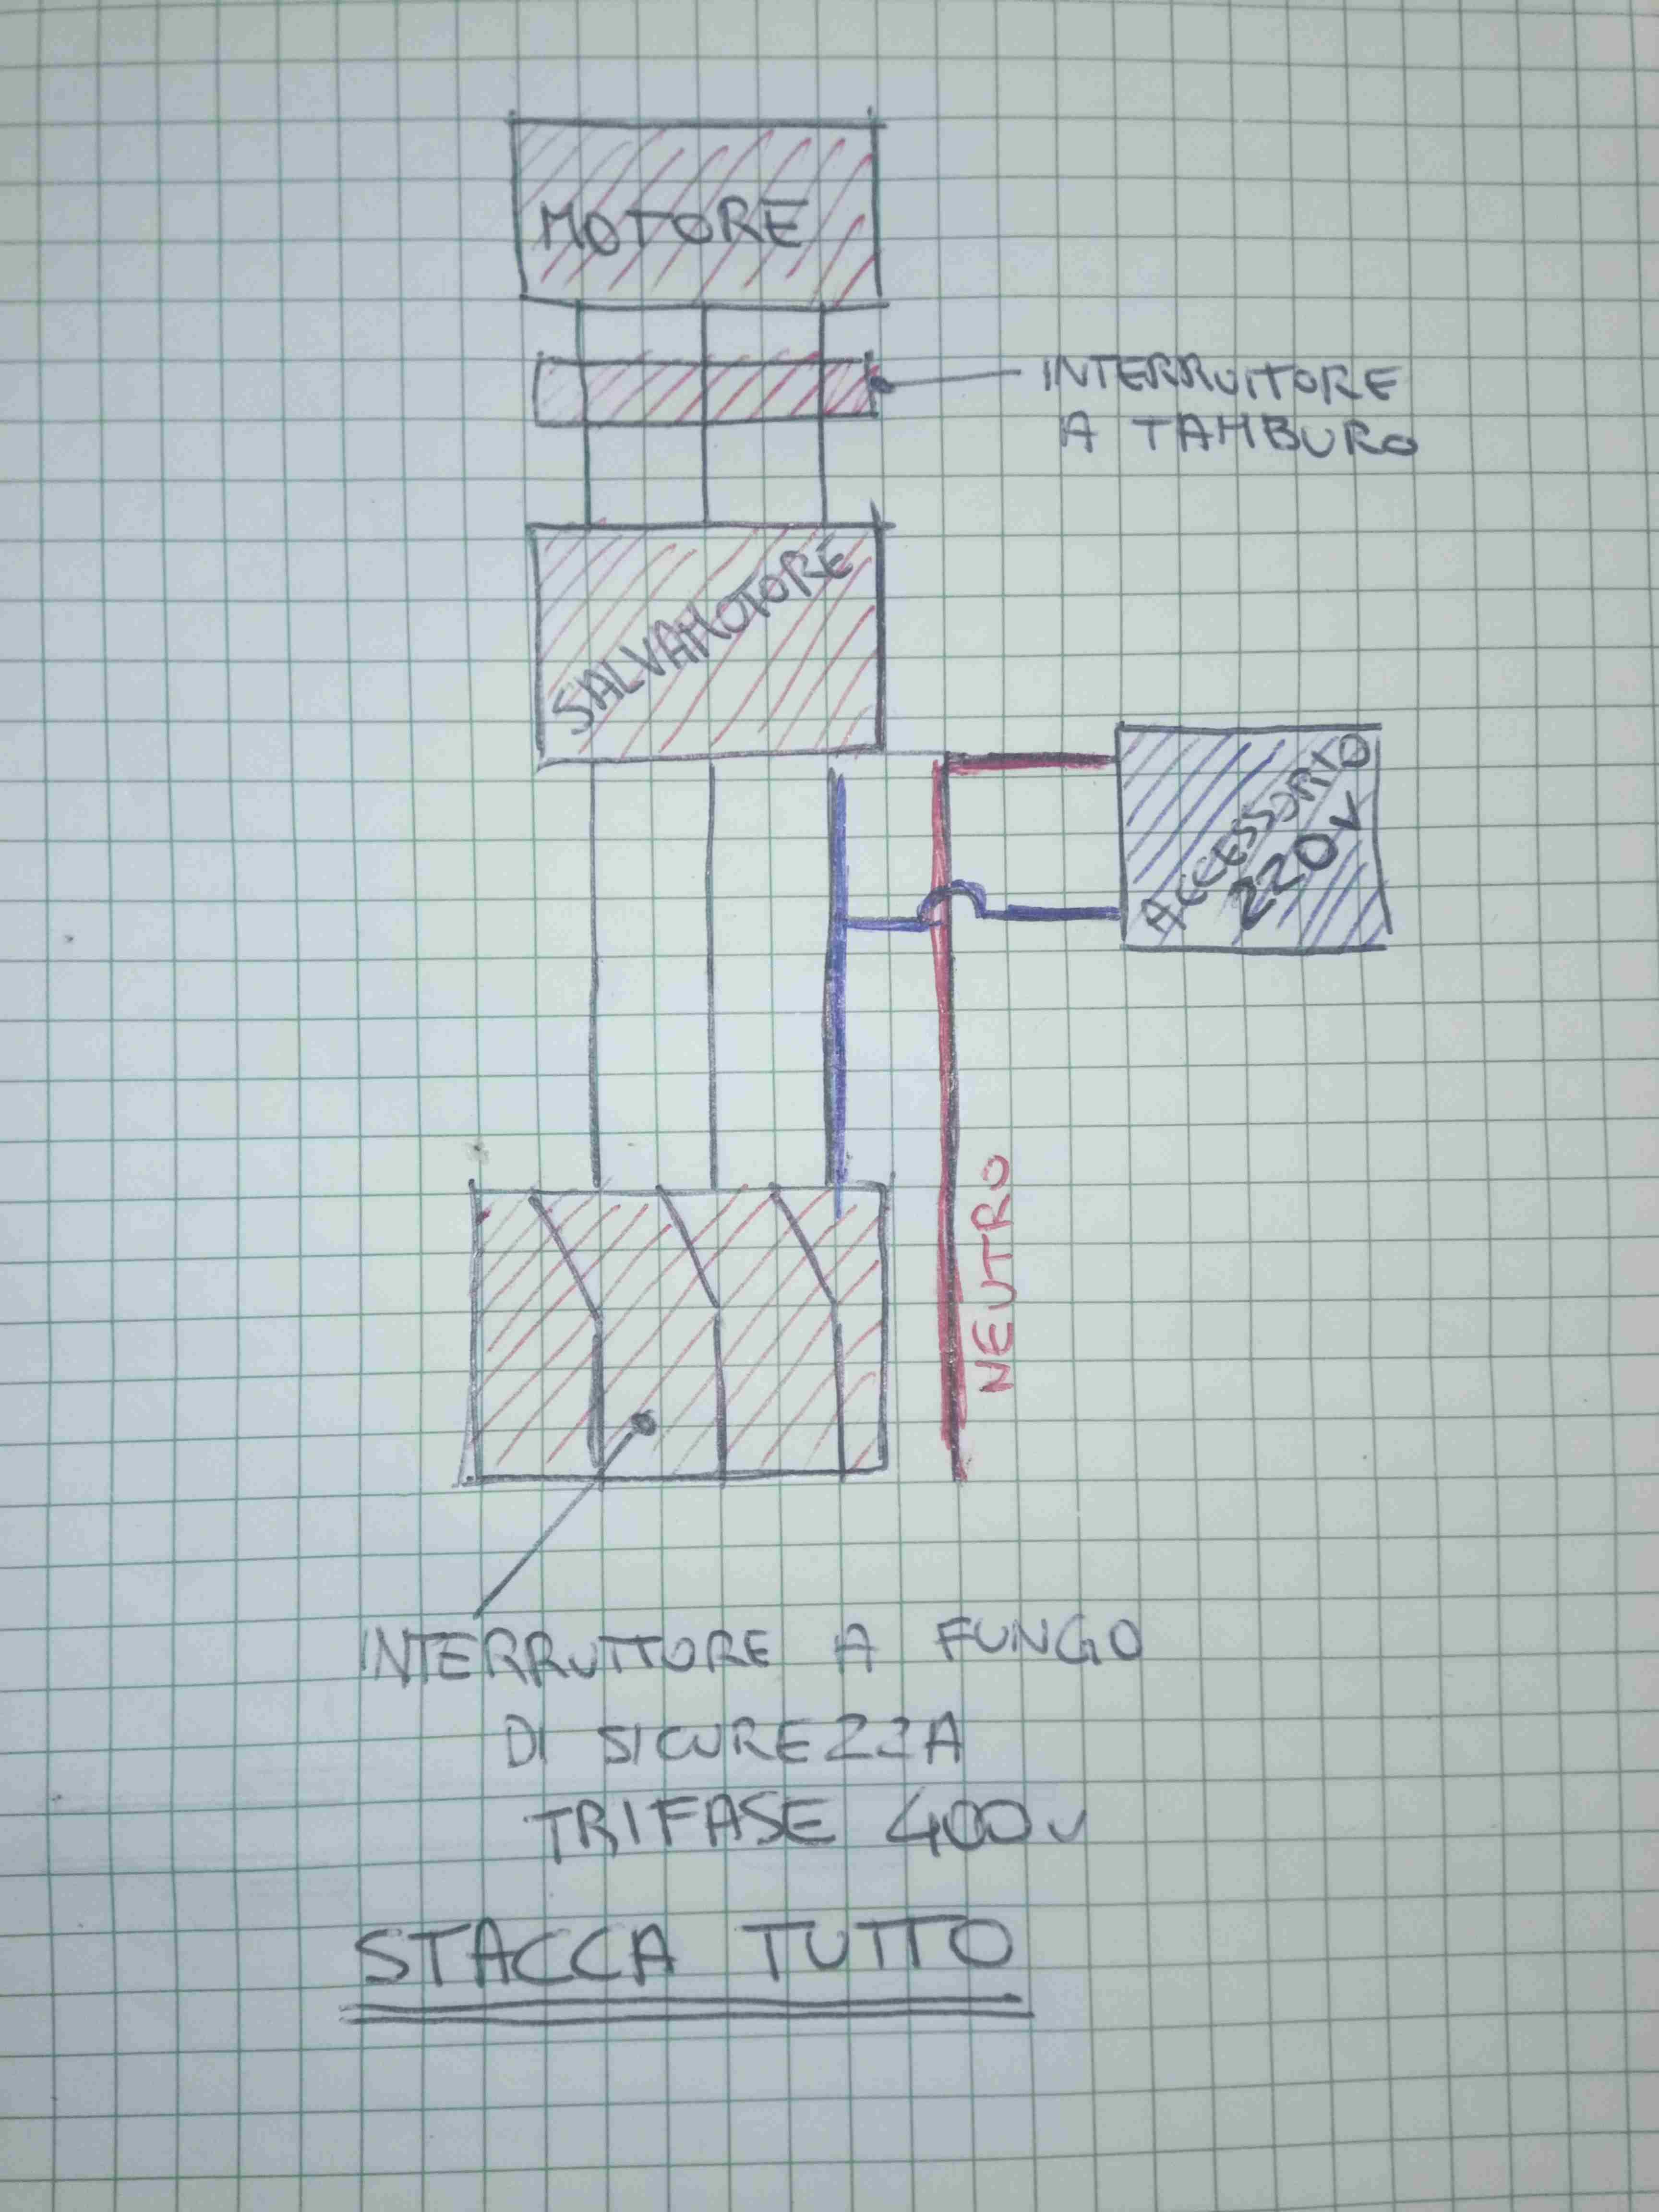 MOTORE
INTERRUTTORE
A TAMBURO
SALVAMOTORE
ACCESSORIO
220V
NEUTRO
INTERRUTTORE A FUNGO
DI SICUREZZA
TRIFASE 400V
STACCA TUTTO